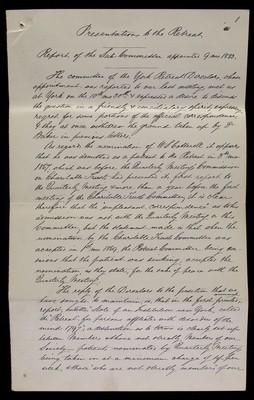 1
Presentation to the Retreat.
Report of the Sub Committee appointed 9 mo 1883.
The committee of the York Retreat Directors, whose
appointment was reported to our last meeting, met us
at York on the 10th mo 30th & expressed a desire to discuss
the question in a friendly & conciliatory spirit, express
regret for some portions of the official correspondence
& they at once withdrew the ground taken up by
in previous letters.
As regards the nomination of W. it appears
that he was admitted as a patient to the Retreat in 3rd mo
1867, which was before the Quarterly Meeting's Committee
on Charitable Trusts had presented its first report to
the Quarterly Meeting & more than a year before the first
meeting of the Charitable Trusts Committee; it is clear
therefore that the unpleasant correspondence as to his
admission was not with the Quarterly Meeting or this
Committee, but the statement made is that when the
nomination by the Charitable Trusts Committee was
accepted in 1st mo 1869 the Retreat Committee being an
aware that the patient was smoking, accepted the
nomination as they state, for the sake of peace with the
Quarterly Meeting.
The reply of the Directors to the position that we
have sought to maintain is, that in the first printed
report, entitled State of an Institution near York, called
the Retreat, for Persons afflicted with disorders of the
mind 1797, a distinction as to terms is clearly set up
between Members & those not strictly Members of our
Society. Patients nominated by Quarterly Meetings
being taken in at a minimum charge of 4/- per
week, & those who are not strictly members of our